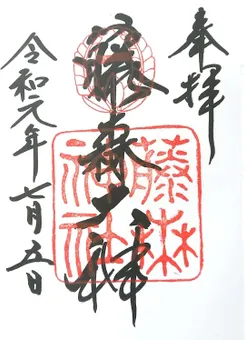 奉拝
藤森大神
藤森
神社
令和元年七月五日